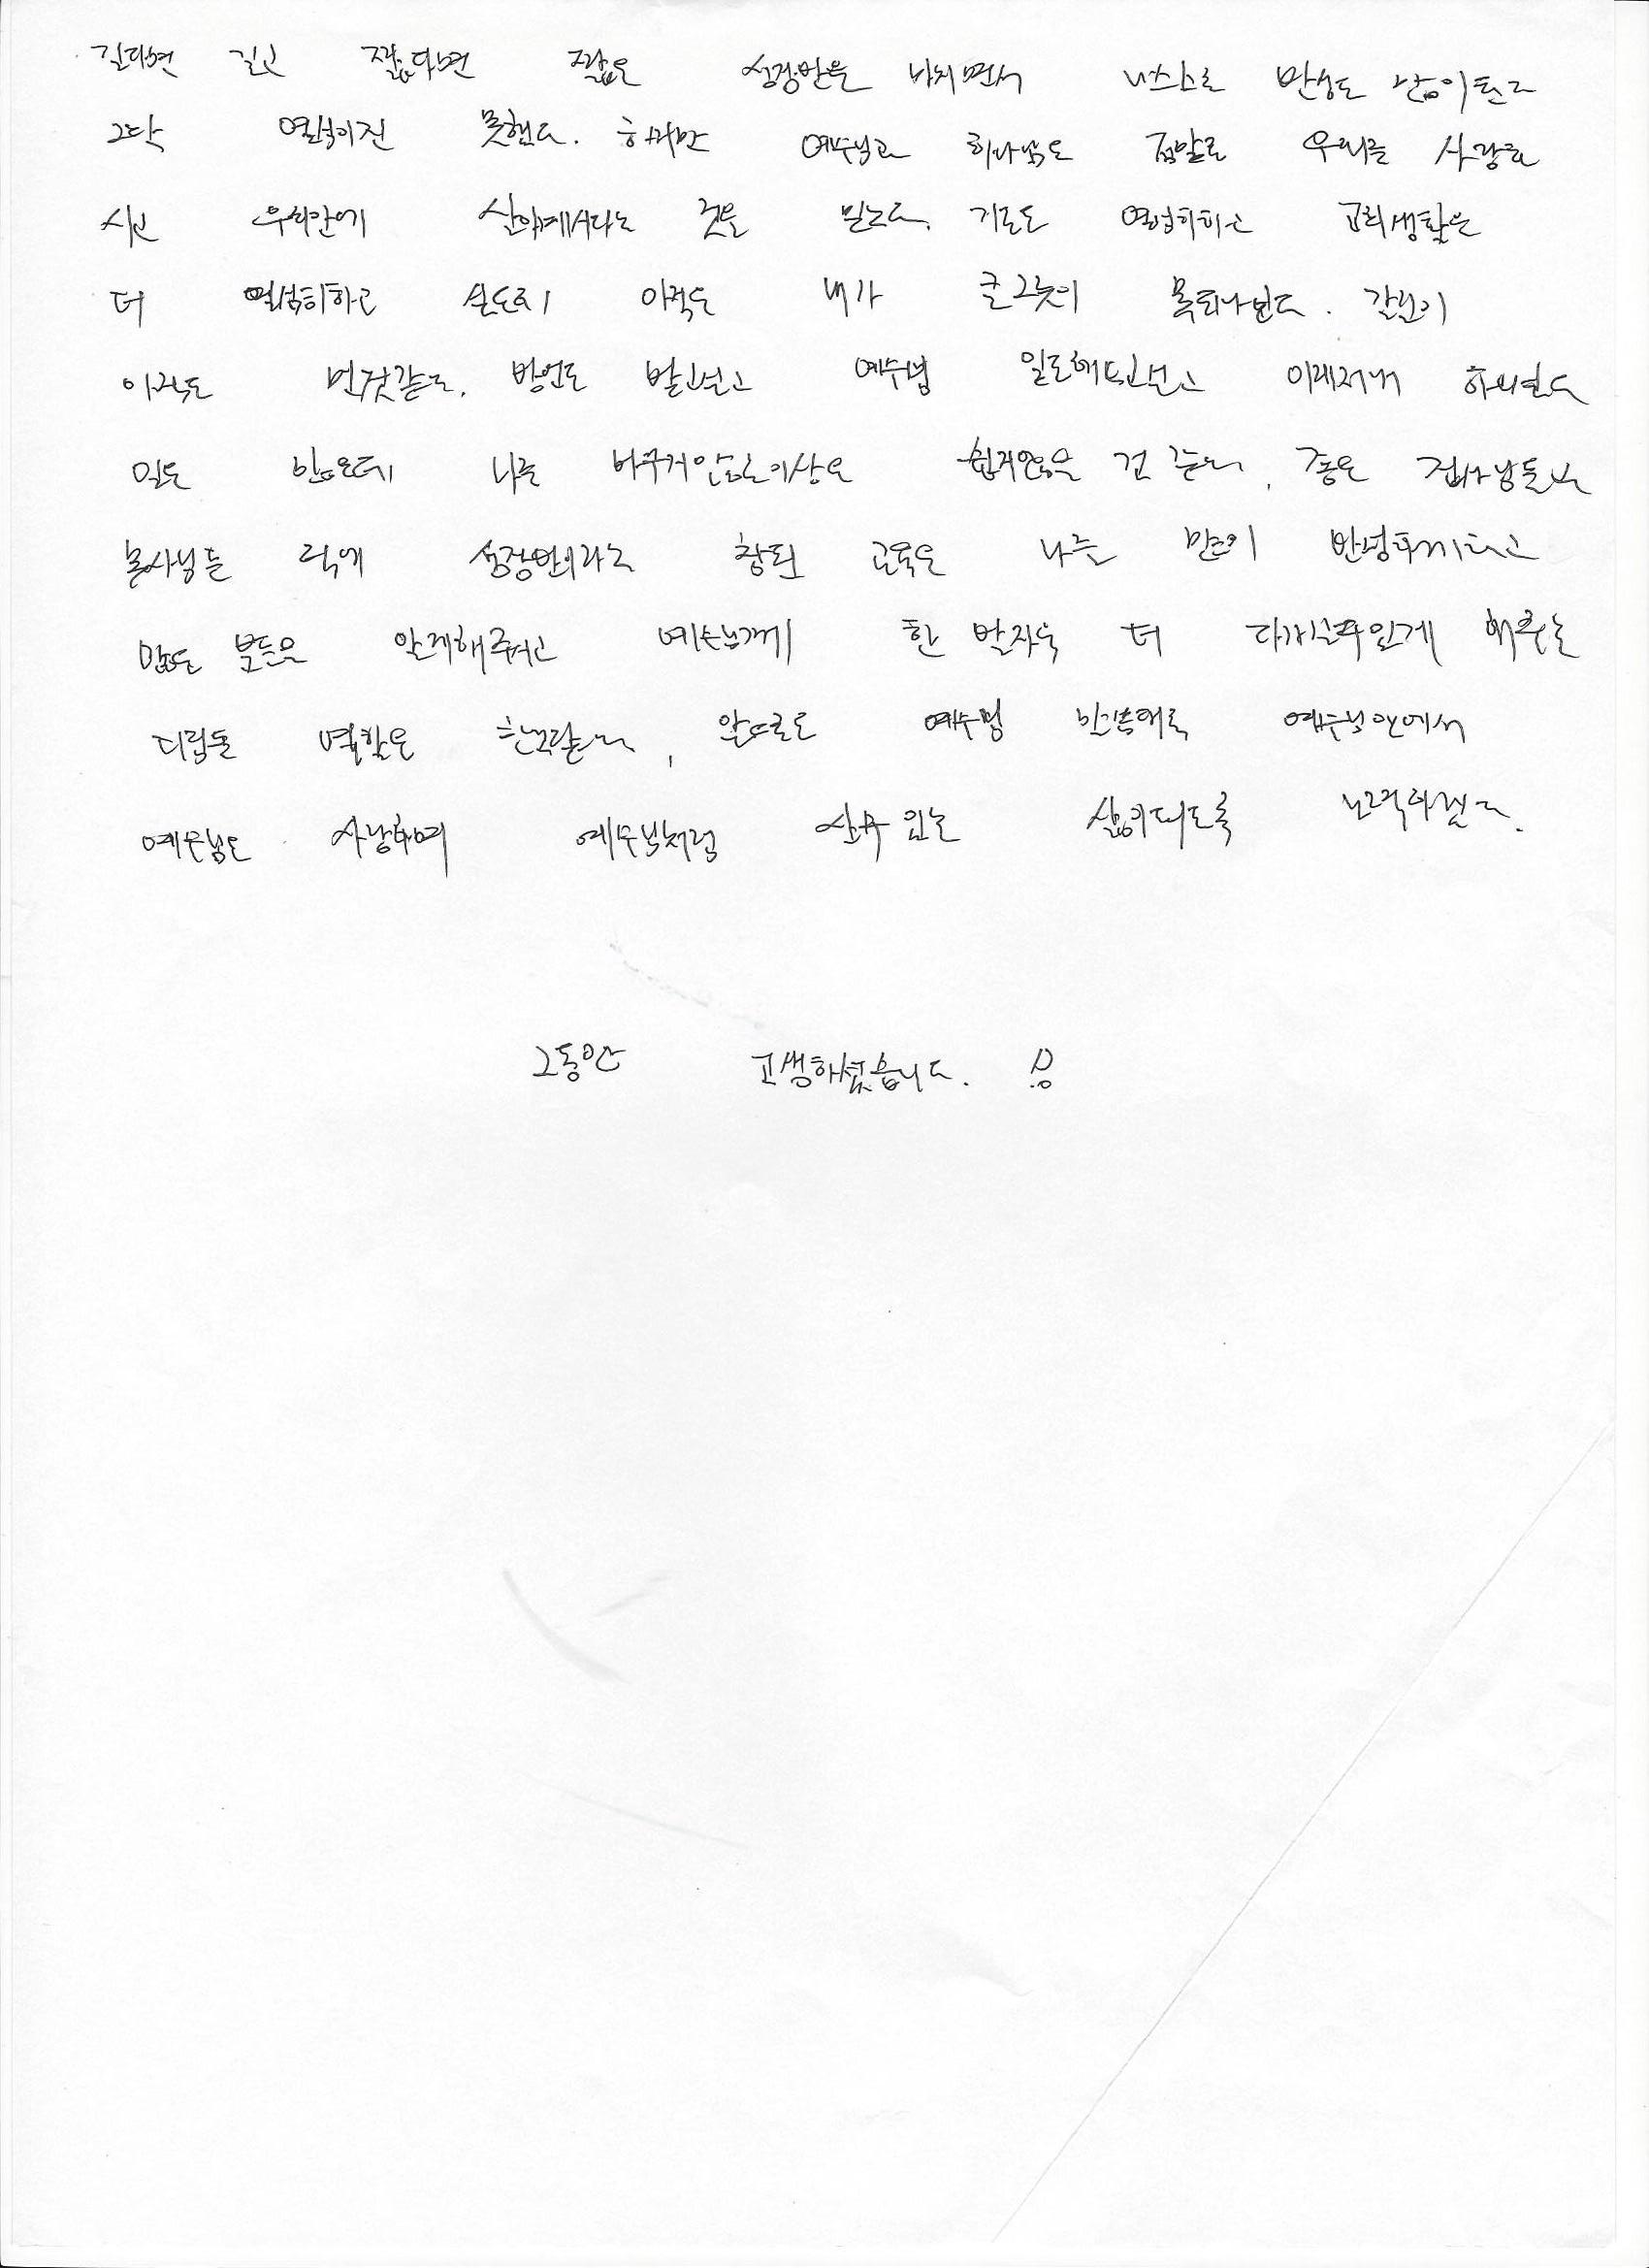 길다면 길고 짧다면 짧은 성장반을 마치면서 내스스로 반성도 많이된다
그닥 열심이진 못했다. 하지만 예수님과 하나님은 정말로 우리를 사랑하
시고 우리안에 살아계시다는 것을 믿는다. 기도도 열심히하고 교회생활을
더 열심히하고 싶은데 아직도 내가 큰그릇이 못되나보다. 갈길이
아직도 먼것같다. 방언도 받고싶고 예수님 일도해보고싶고 이래저래
일도 많은데 나를 바꾸지않는이상은 쉽지않을 것 같다. 좋은 집사님들과
목사님들 덕에 성장반이라는 참된 교육은 나를 많이 반성하게하고
많은 분들을 알게해주고 예수님께 한 발자국 더 다가설수있게 해주는
디딤돌 역할을 한것같다. 앞으로도 예수님 안에서
예수님을 사랑하며 예수님처럼 살수 있는 삶이되도록 노력하겠다.
그동안 고생하셨습니다.